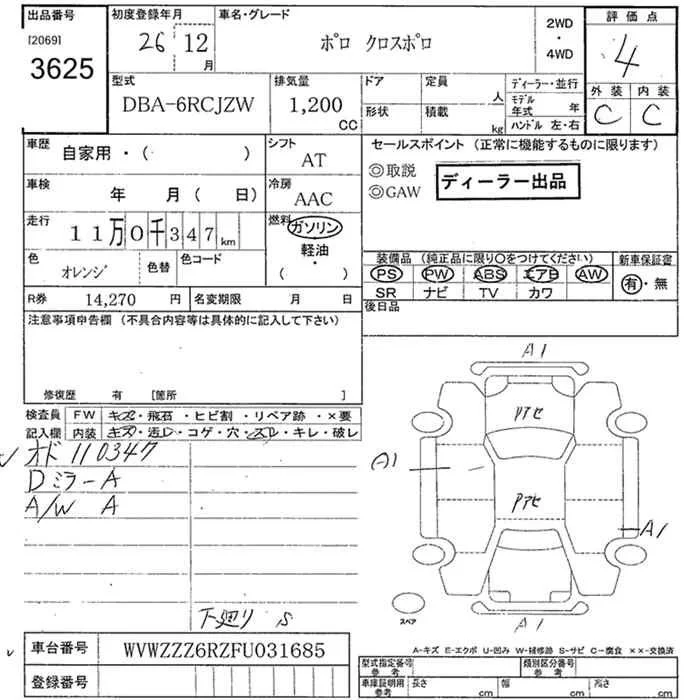 出品番号 初度登録年月 車名・グレード 2WD ・ 4WD 評価点
[2069] 3625 26 12月 ポロ クロスポロ 4
型式 排気量 ドア 定員 人 ディーラー・並行 外装 内装
DBA-6RCJZW 1,200 CC 形状 積載 kg モデル年式 年 C C
ハンドル 左・右
車歴 自家用・( ) シフト AT セールスポイント (正常に機能するものに限ります)
◎取説 ディーラー出品
車検 年 月 ( 日) 冷房 AAC ◎GAW
走行 11万0千347km 燃料 ガソリン 軽油・( )
色 オレンジ 色替 色コード 装備品 (純正品に限り○をつけてください) 新車保証書
PS PW ABS エアB AW 有・無
R券 14,270 円 名変期限 月 日 SR ナビ TV カワ
注意事項申告欄 (不具合内容等は具体的に記入して下さい) 後日品
修復歴 有 [箇所 ]
検査員 FW キズ・飛石・ヒビ割・リペア跡・×要
記入欄 内装 キズ・汚レ・コゲ・穴・スレ・キレ・破レ
オド 110347
Dミラー A
A/W A
下廻り S
A1
Pアセ
A1
Pアセ
A1
A1
スペア
A-キズ E-エクボ U-凹み W-補修跡 S-サビ C-腐食 ××-交換済
車台番号 WVWZZZ6RZFU031685 型式指定番号 参考 類別区分番号 参考
登録番号 車庫証明用 参考 長さ cm 幅 cm 高さ cm